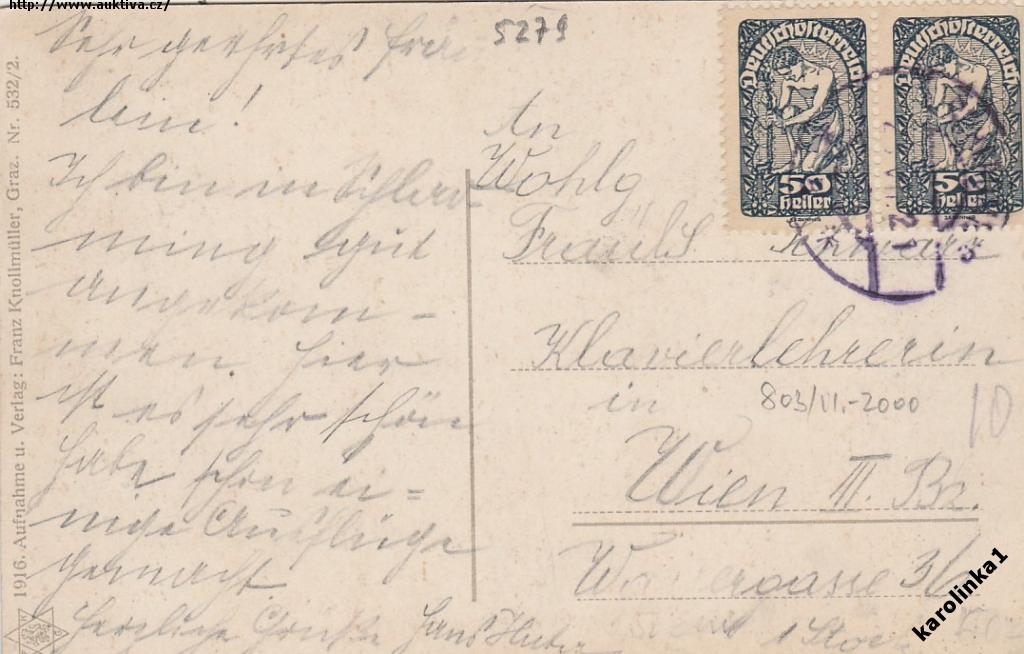 http://www.auktiva.cz/
5279
Sehr geehrtes Fräu
lein!
Ich bin in Schlad
ming gut
angekom -
men. Hier
ist es sehr schön
habe schon ei =
nige Ausflüge
gemacht.
Herzliche Grüße Hans
1916. Aufnahme u. Verlag: Franz Knollmüller, Graz. Nr. 532/2.
Deutschösterreich
50
Heller
Deutschösterreich
50
Heller
An
Wohlg
Klavierlehrerin
in
803/VI.-2000
10
Wien III. Bz.
karolinka1